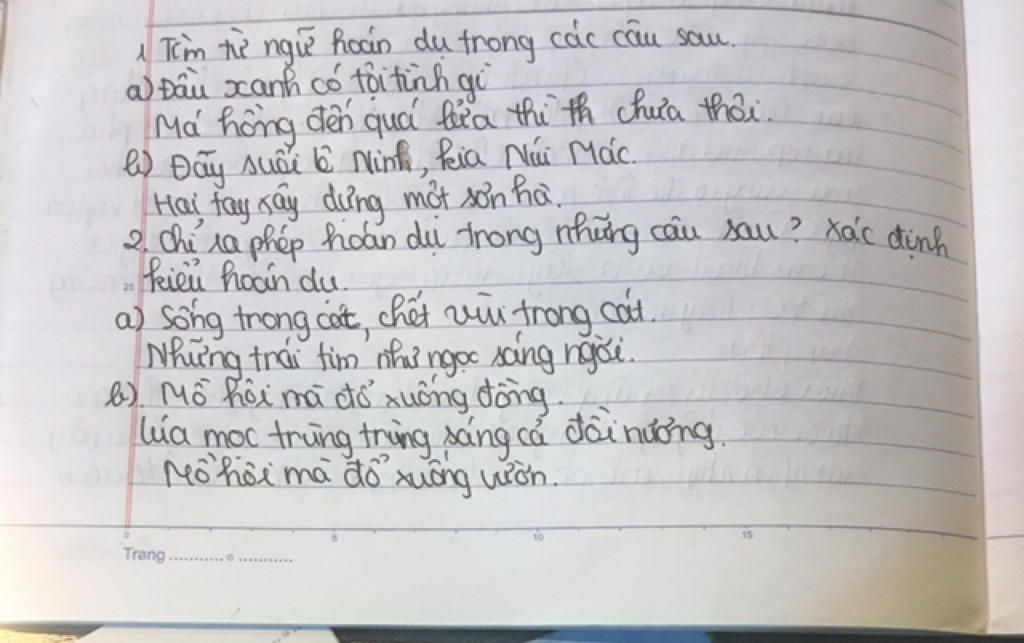 1. Tìm từ ngữ hoán dụ trong các câu sau.
a) Đầu xanh có tội tình gì
Má hồng đến quá nửa thì th chưa thôi.
b) Đây suối Lê Ninh, kia Núi Mác.
Hai tay xây dựng một sơn hà.
2. Chỉ ra phép hoán dụ trong những câu sau? Xác định
25 kiểu hoán dụ.
a) Sống trong cát, chết vùi trong cát.
Những trái tim như ngọc sáng ngời.
b). Mồ hôi mà đổ xuống đồng.
Lúa mọc trùng trùng sáng cả đồi nương.
Mồ hôi mà đổ xuống vườn.
0 5 10 15
Trang ............o............